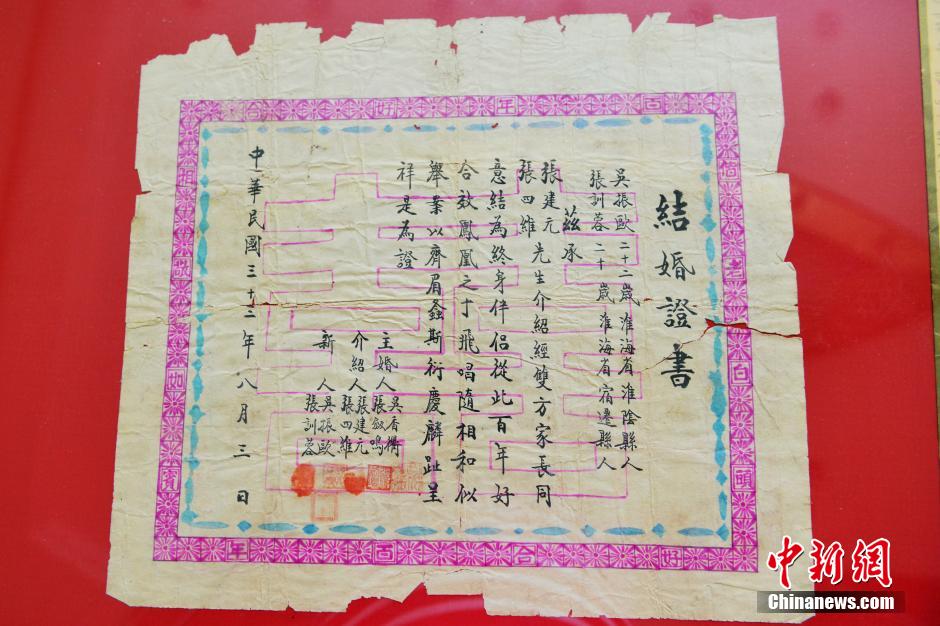 結婚證書
吳振歐二十二歲淮海省淮陰縣人
張訓蓉二十歲淮海省宿遷縣人
茲承
張建元
張四維
先生介紹經雙方家長同
意結為終身伴侶從此百年好
合效鳳凰之于飛唱隨相和似
舉案以齊眉螽斯衍慶麟趾呈
祥是為證
主婚人
吳香衢
張敘鳴
介紹人
張建元
張四維
新人
吳振歐
張訓蓉
中華民國三十三年八月三日
百年好合
偕老白頭
相敬如賓
好合百年
中新網
Chinanews.com